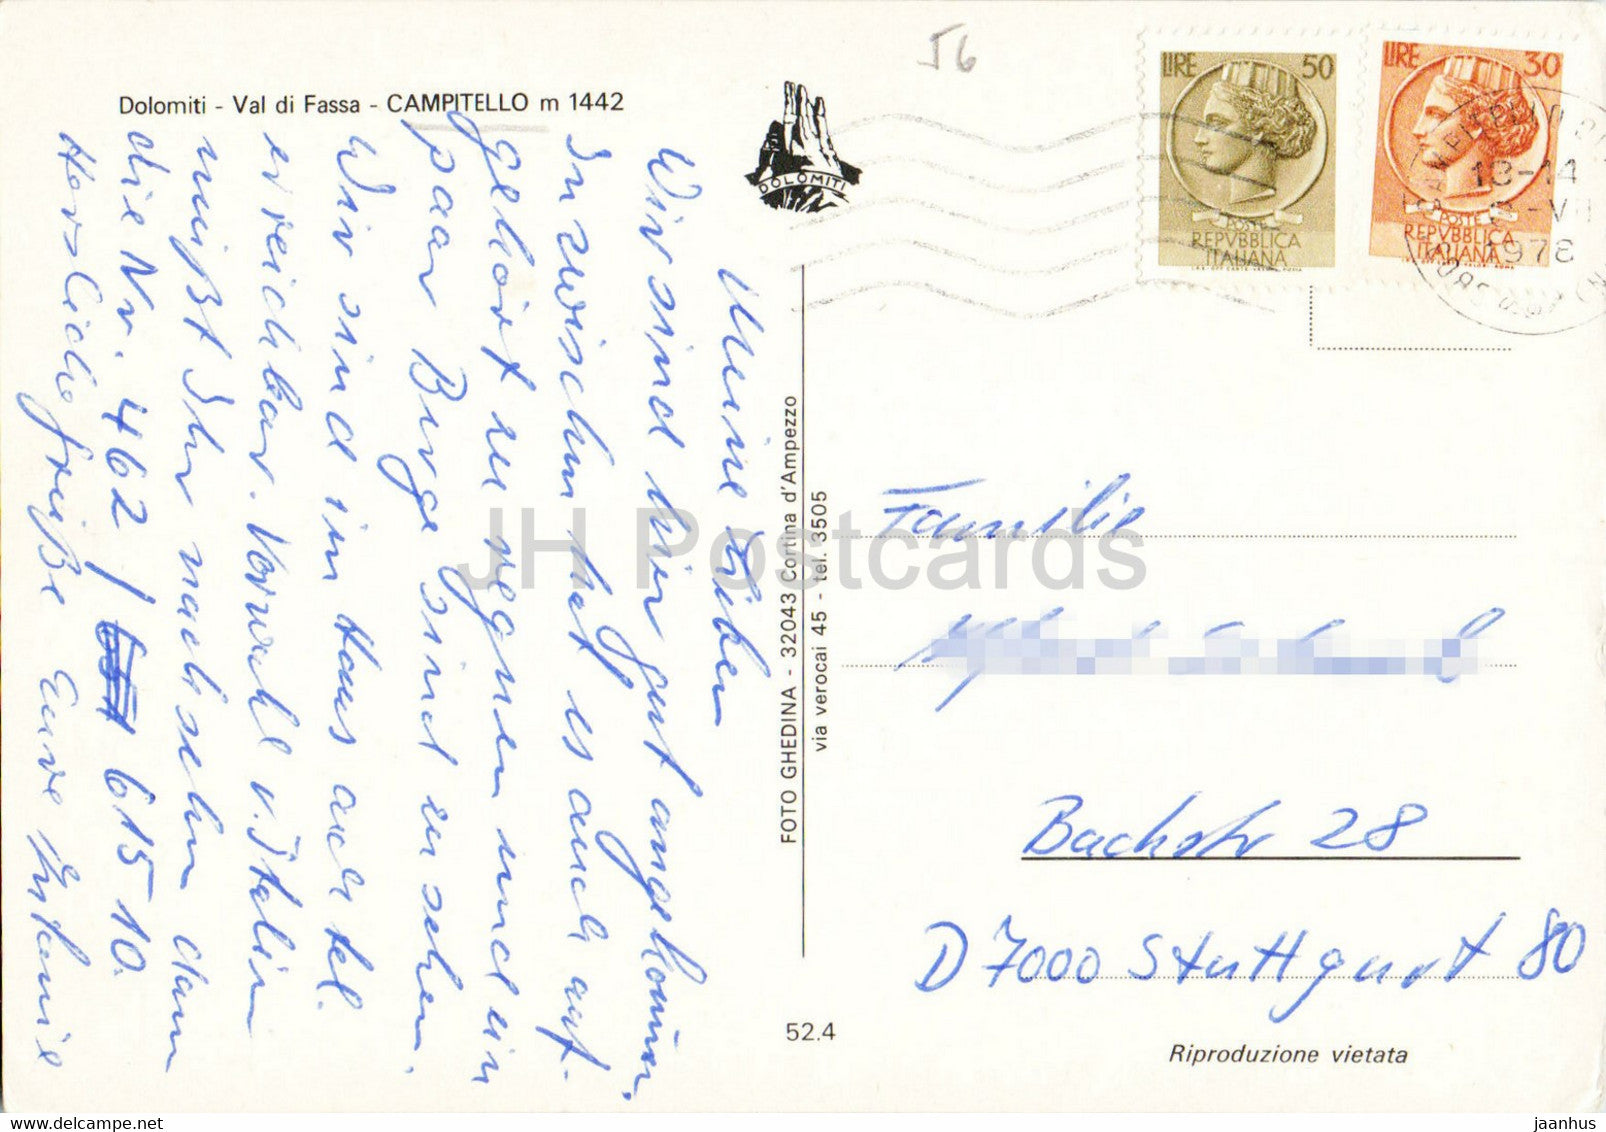 Dolomiti - Val di Fassa - CAMPITELLO m 1442
DOLOMITI
56
LIRE 50
POSTE
REPVBBLICA
ITALIANA
LIRE 30
POSTE
REPVBBLICA
ITALIANA
13-14
1978
Meine Lieben
Wir sind hier gut angekommen.
Inzwischen hat es auch auf-
gehört zu regnen und ein
paar Berge sind zu sehen.
Wir sind im Haus auch tel.
erreichbar. Vorwahl v. Italien
müßt Ihr nachsehen dann
die Nr. 462 / 61510.
Herzliche Grüße Eure
FOTO GHEDINA - 32043 Cortina d'Ampezzo
via verocai 45 - tel. 3505
Familie
Bachstr 28
D 7000 Stuttgart 80
52.4
Riproduzione vietata
JH Postcards
delcampe.net
jaanhus